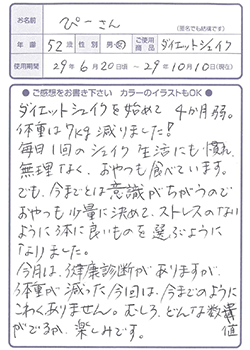 お名前 ぴーさん (匿名でも結構です)
年齢 52歳 性別 男・女 ご使用商品 ダイエットシェイク
使用期間 29年6月20日頃 ～ 29年10月10日(現在)
●ご感想をお書き下さい カラーのイラストもOK●
ダイエットシェイクを始めて 4か月弱。
体重は7kg減りました!
毎日1回のシェイク生活にも慣れ
無理なく、おやつも食べています。
でも、今までとは意識がちがうので
おやつも少量に決めて、ストレスのない
ように体に良いものを選ぶように
なりました。
今月は、健康診断がありますが、
体重が減った今回は、今までのように
こわくありません。むしろ、どんな数値
がでるか、楽しみです。